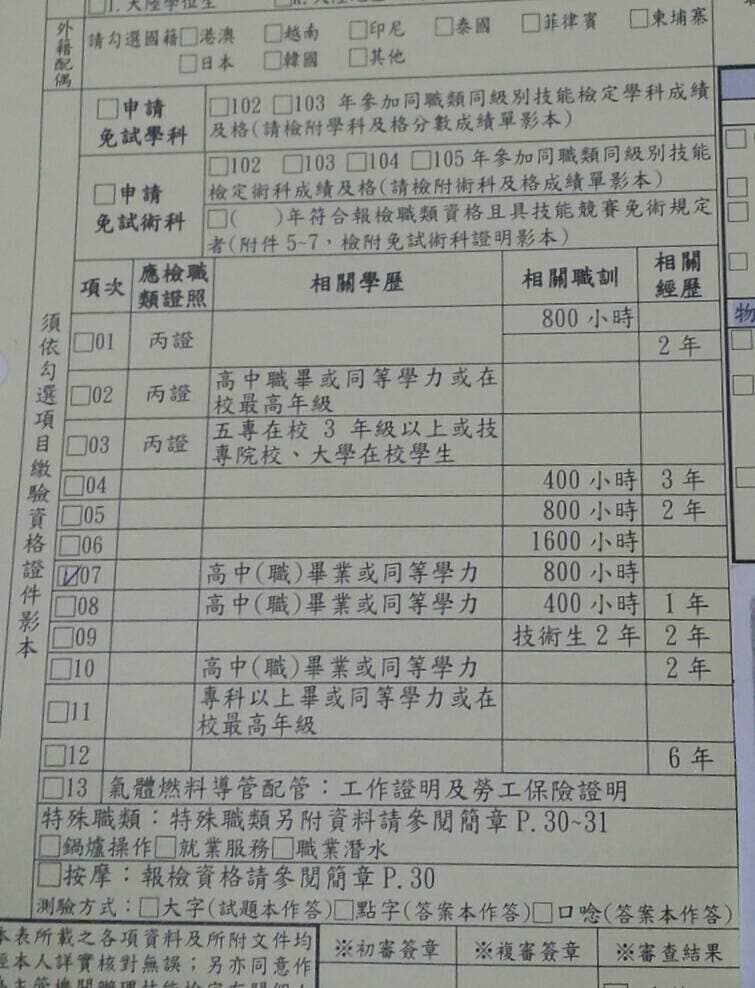 □1. 大陸學位生
外籍配偶
請勾選國籍□港澳 □越南 □印尼 □泰國 □菲律賓 □柬埔寨
□日本 □韓國 □其他
□申請
免試學科
□102 □103 年參加同職類同級別技能檢定學科成績
及格(請檢附學科及格分數成績單影本)
□申請
免試術科
□102 □103 □104 □105 年參加同職類同級別技能
檢定術科成績及格(請檢附術科及格成績單影本)
□( )年符合報檢職類資格且具技能競賽免術規定
者(附件 5~7，檢附免試術科證明影本)
須依勾選項目繳驗資格證件影本
項次 應檢職類證照 相關學歷 相關職訓 相關經歷
□01 丙證 800 小時
2 年
□02 丙證 高中職畢或同等學力或在
校最高年級
□03 丙證 五專在校 3 年級以上或技
專院校、大學在校學生
□04 400 小時 3 年
□05 800 小時 2 年
□06 1600 小時
☑07 高中(職)畢業或同等學力 800 小時
□08 高中(職)畢業或同等學力 400 小時 1 年
□09 技術生 2 年 2 年
□10 高中(職)畢業或同等學力 2 年
□11 專科以上畢或同等學力或在
校最高年級
□12 6 年
□13 氣體燃料導管配管：工作證明及勞工保險證明
特殊職類：特殊職類另附資料請參閱簡章 P.30~31
□鍋爐操作□就業服務□職業潛水
□按摩：報檢資格請參閱簡章 P.30
測驗方式：□大字(試題本作答)□點字(答案本作答)□口唸(答案本作答)
本表所載之各項資料及所附文件均
經本人詳實核對無誤；另亦同意作
※初審簽章 ※複審簽章 ※審查結果
物